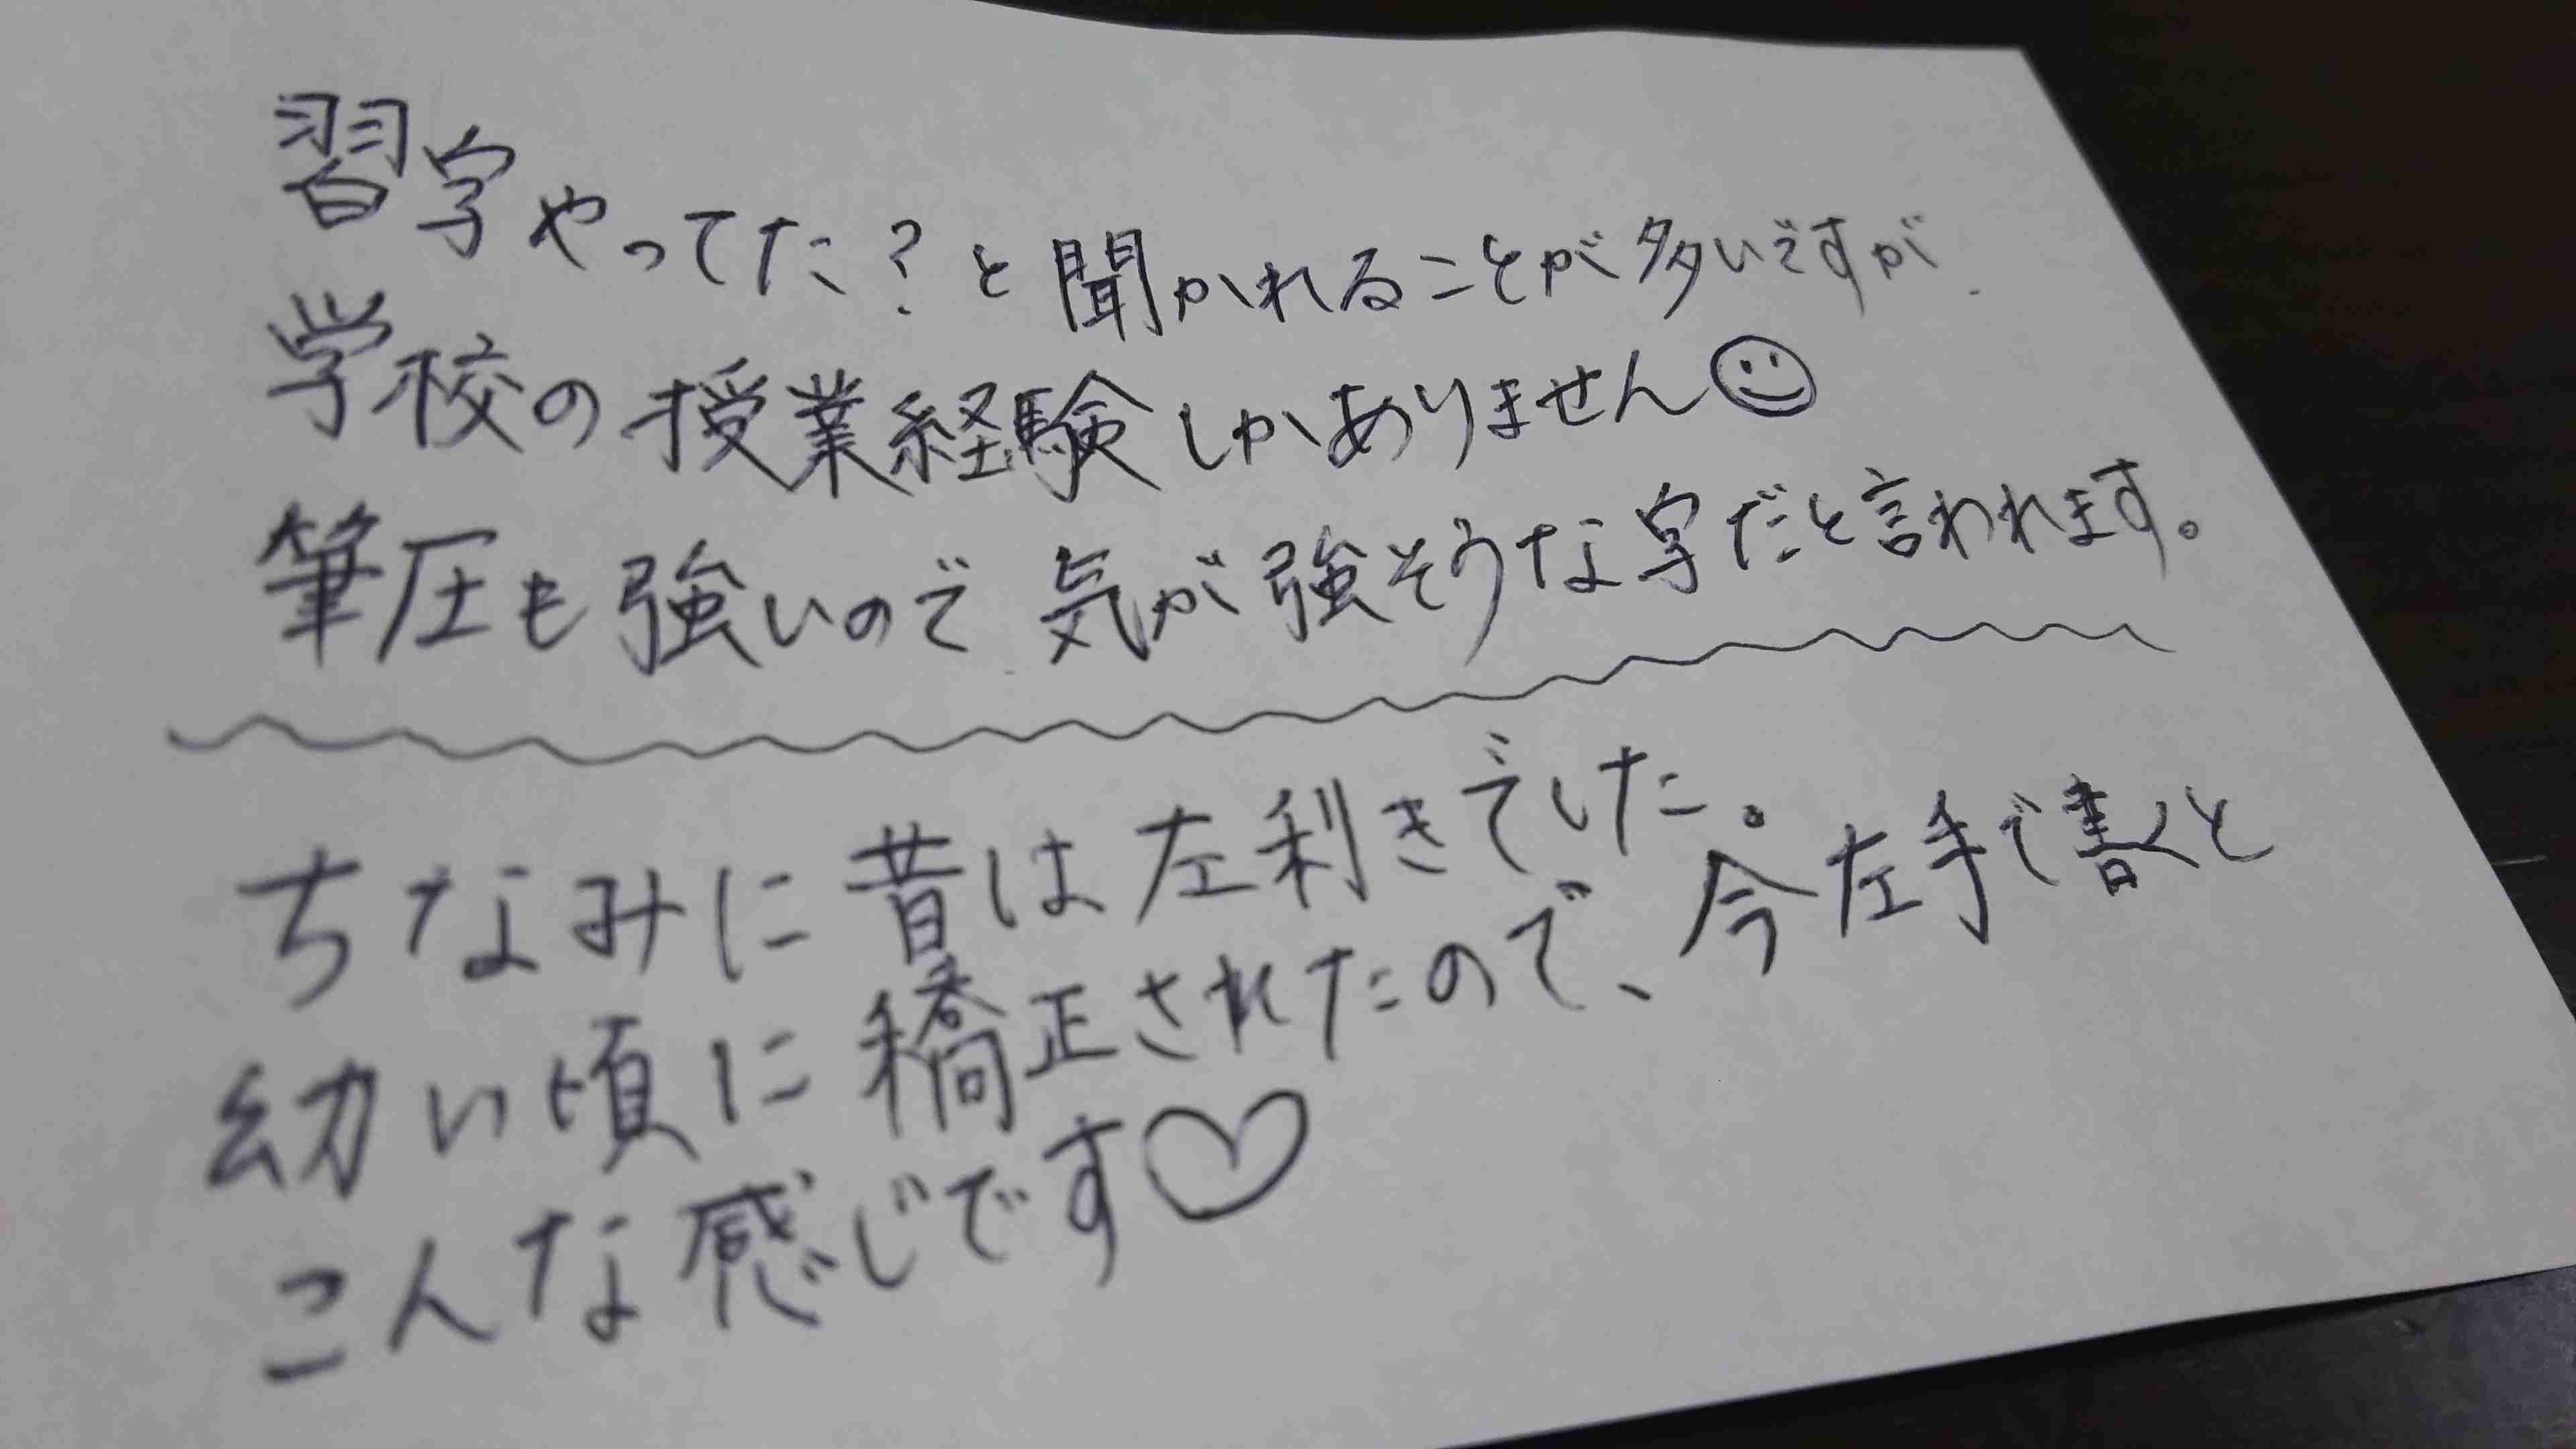 習字やってた？と聞かれることが多いですが
学校の授業経験しかありません☺
筆圧も強いので気が強そうな字だと言われます。
ちなみに昔は左利きでした。
幼い頃に矯正されたので、今左手で書くと
こんな感じです♡